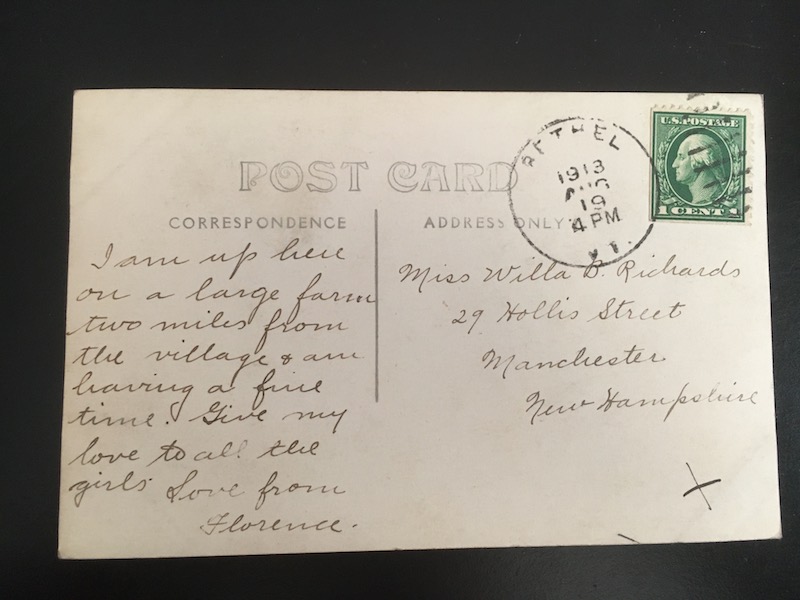 POST CARD
CORRESPONDENCE
ADDRESS ONLY
BETHEL
1913
AUG
19
4 PM
VT.
U.S. POSTAGE
1 CENT 1
I am up here
on a large farm
two miles from
the village & am
having a fine
time. Give my
love to all the
girls. Love from
Florence.
Miss Willa B. Richards
29 Hollis Street
Manchester
New Hampshire
X